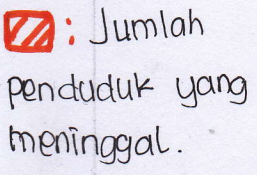 : Jumlah
penduduk yang
meninggal.